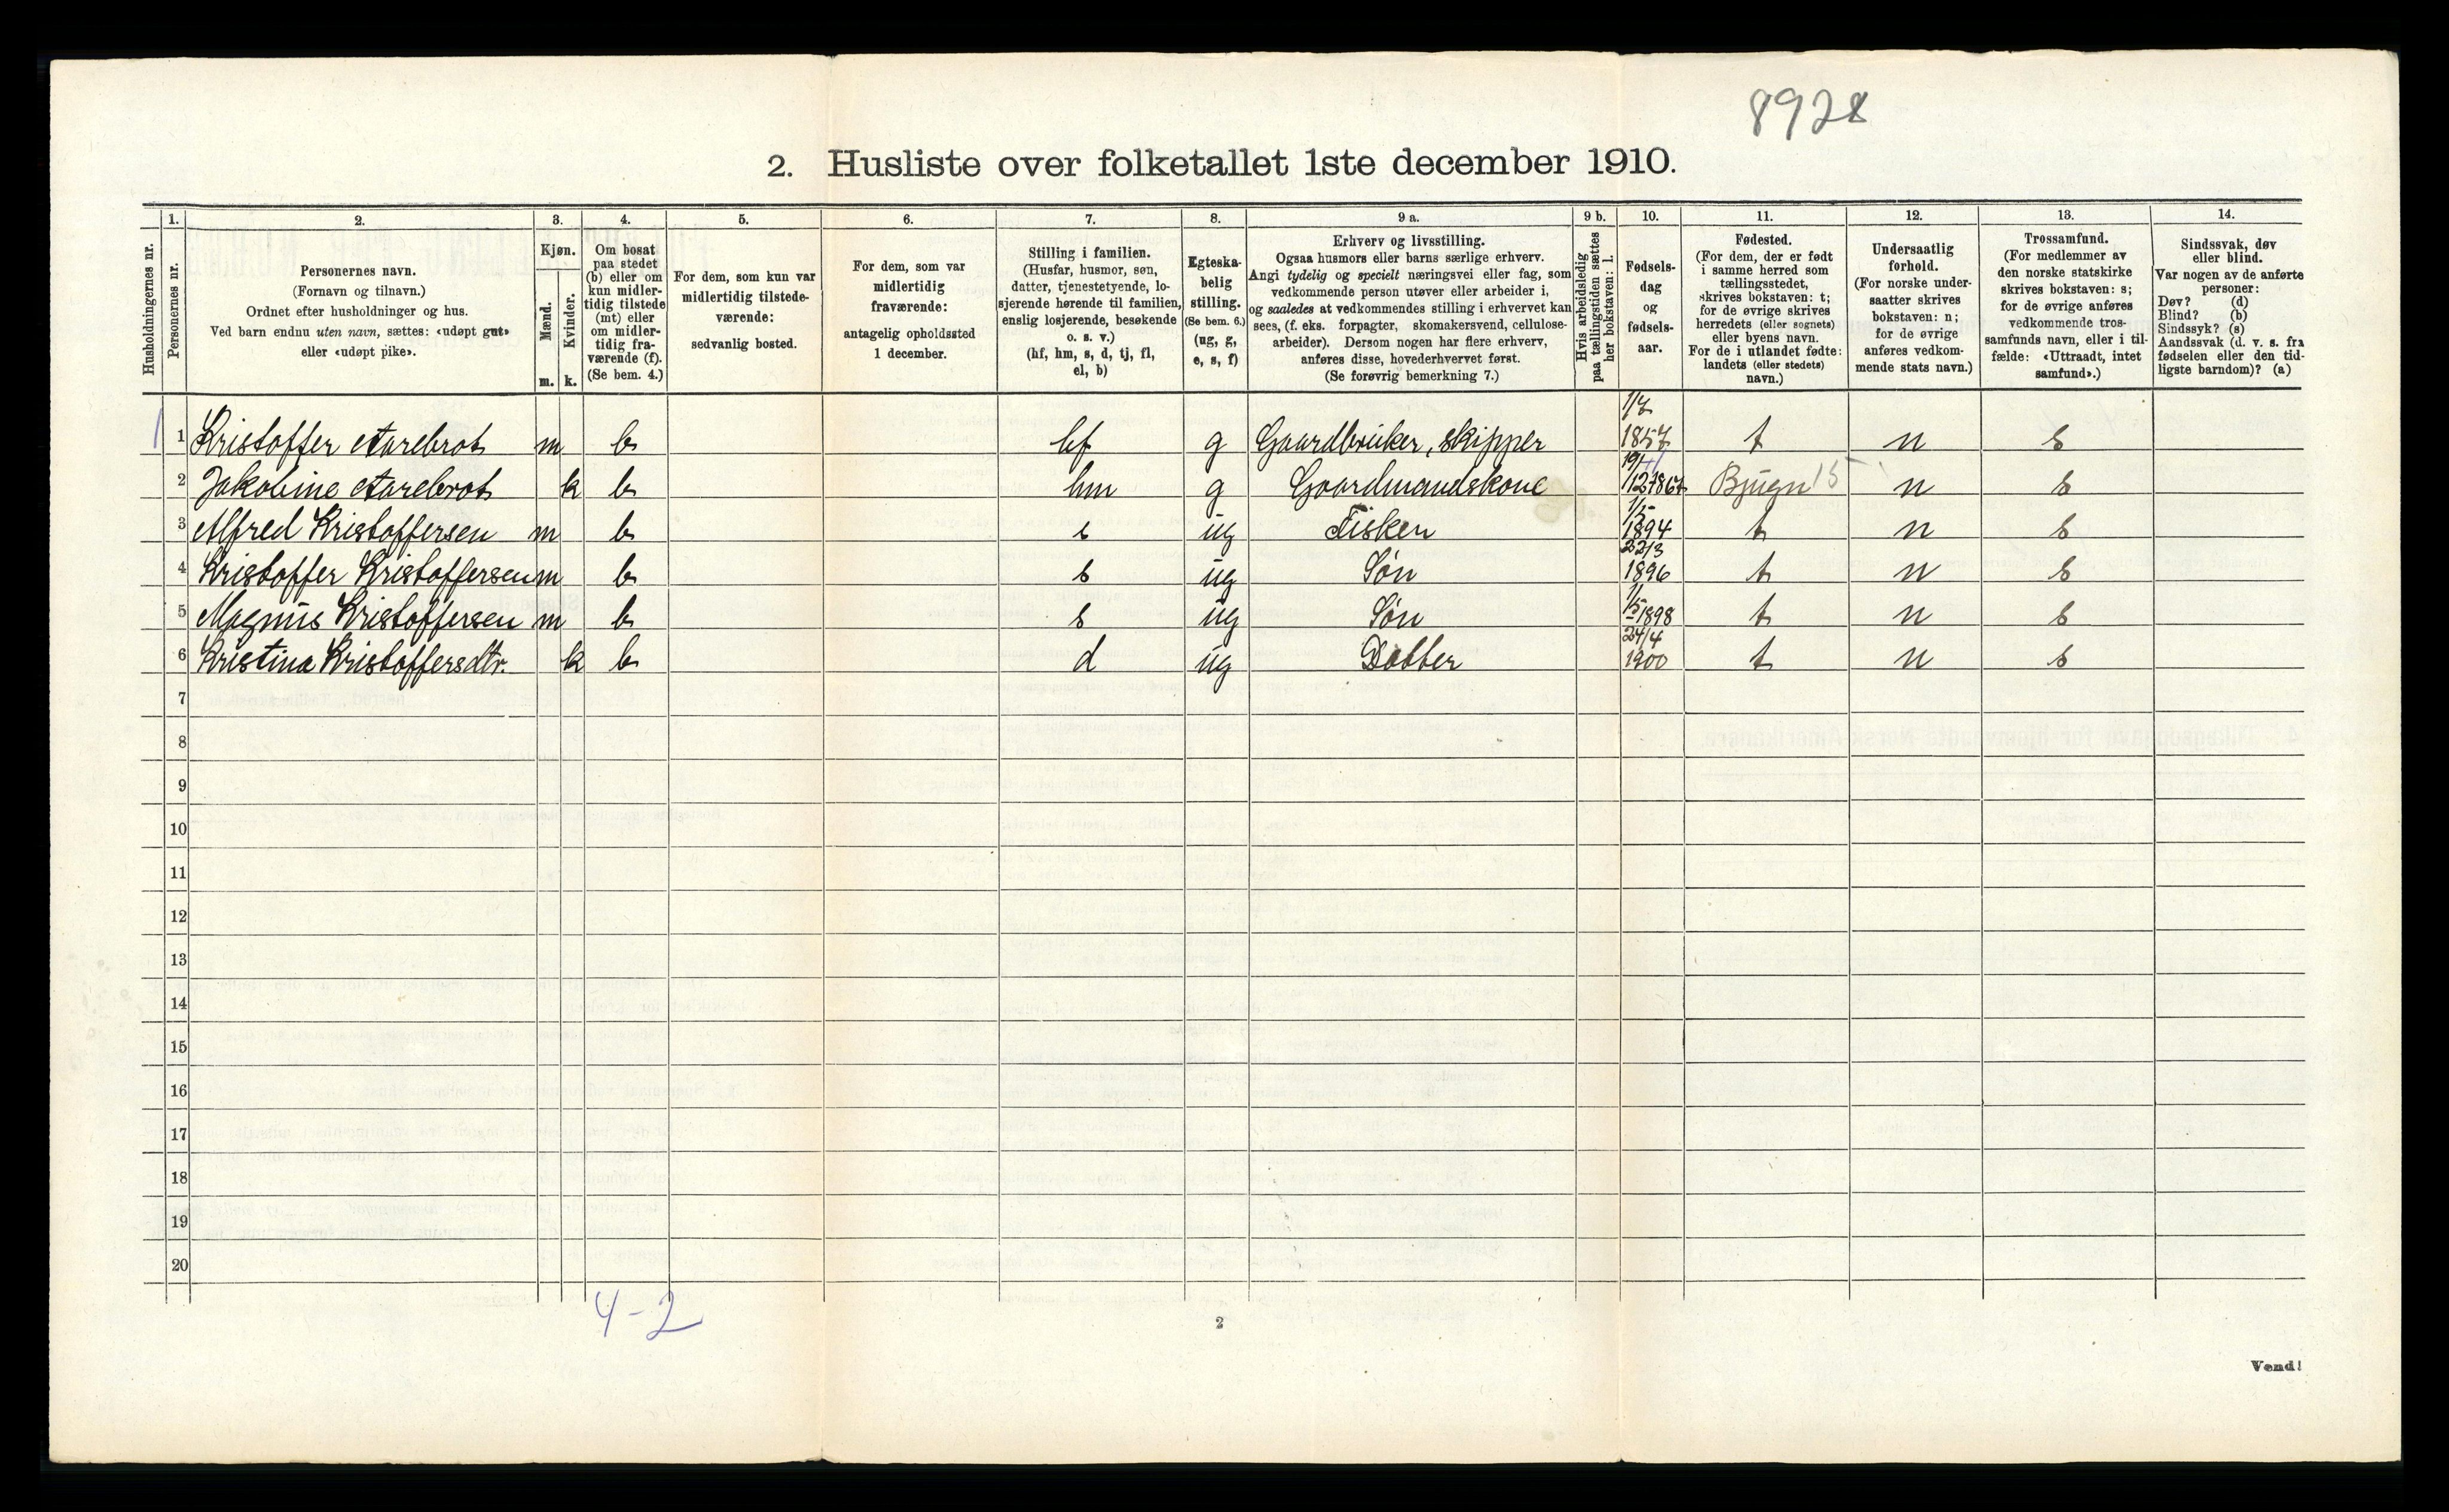 8928
2. Husliste over folketallet 1ste december 1910.
Husholdningernes nr.
1. Personernes nr.
2. Personernes navn. (Fornavn og tilnavn.) Ordnet efter husholdninger og hus. Ved barn endnu uten navn, sættes: «udøpt gut» eller «udøpt pike».
3. Kjøn. Mænd. m. Kvinder. k.
4. Om bosat paa stedet (b) eller om kun midlertidig tilstede (mt) eller om midlertidig fraværende (f). (Se bem. 4.)
5. For dem, som kun var midlertidig tilstedeværende: sedvanlig bosted.
6. For dem, som var midlertidig fraværende: antagelig opholdssted 1 december.
7. Stilling i familien. (Husfar, husmor, søn, datter, tjenestetyende, losjerende hørende til familien, enslig losjerende, besøkende o. s. v.) (hf, hm, s, d, tj, fl, el, b)
8. Egteskabelig stilling. (Se bem. 6.) (ug, g, e, s, f)
9 a. Erhverv og livsstilling. Ogsaa husmors eller barns særlige erhverv. Angi tydelig og specielt næringsvei eller fag, som vedkommende person utøver eller arbeider i, og saaledes at vedkommendes stilling i erhvervet kan sees, (f. eks. forpagter, skomakersvend, cellulosearbeider). Dersom nogen har flere erhverv, anføres disse, hovederhvervet først. (Se forøvrig bemerkning 7.)
9 b. Hvis arbeidsledig paa tællingstiden sættes her bokstaven: l.
10. Fødselsdag og fødselsaar.
11. Fødested. (For dem, der er født i samme herred som tællingsstedet, skrives bokstaven: t; for de øvrige skrives herredets (eller sognets) eller byens navn. For de i utlandet fødte: landets (eller stedets) navn.)
12. Undersaatlig forhold. (For norske undersaatter skrives bokstaven: n; for de øvrige anføres vedkommende stats navn.)
13. Trossamfund. (For medlemmer av den norske statskirke skrives bokstaven: s; for de øvrige anføres vedkommende trossamfunds navn, eller i tilfælde: «Uttraadt, intet samfund».)
14. Sindssvak, døv eller blind. Var nogen av de anførte personer: Døv? (d) Blind? (b) Sindssyk? (s) Aandssvak (d. v. s. fra fødselen eller den tidligste barndom)? (a)
1 1 Kristoffer Aarebrot m b hf g Gaardbruker, skipper 1/7 1857 t n s
2 Jakobine Aarebrot k b hm g Gaardmandskone 19/12 1867 Bjugn 15 n s
3 Alfred Kristoffersen m b s ug Fisker 1/5 1894 t n s
4 Kristoffer Kristoffersen m b s ug Søn 22/3 1896 t n s
5 Magnus Kristoffersen m b s ug Søn 1/5 1898 t n s
6 Kristina Kristoffersdtr. k b d ug Datter 24/4 1900 t n s
7
8
9
10
11
12
13
14
15
16
17
18
19
20
4-2
2
Vend!